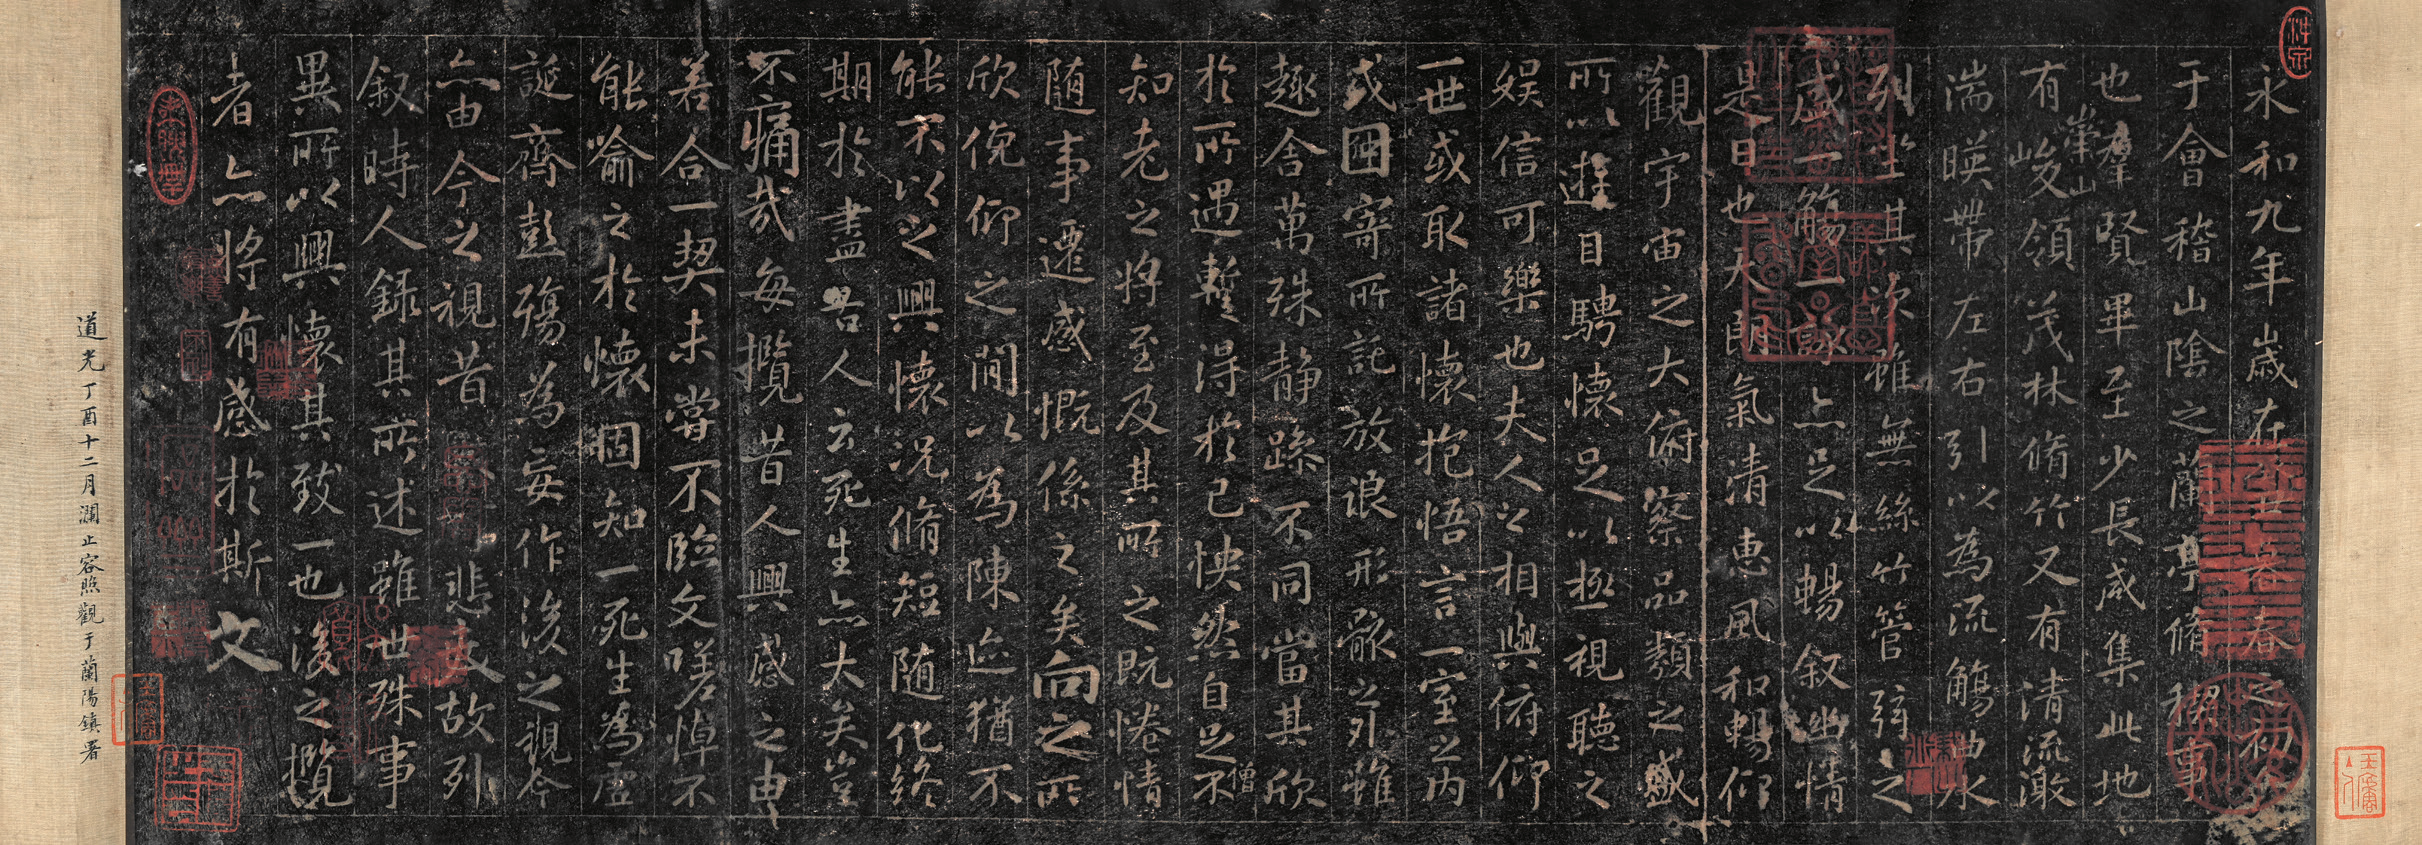 永和九年歲在癸丑暮春之初會
于會稽山陰之蘭亭脩稧事
也羣賢畢至少長咸集此地
崇山
有峻領茂林脩竹又有清流激
湍暎帶左右引以為流觴曲水
列坐其次雖無絲竹管弦之
盛一觴一詠亦足以暢叙幽情
是日也天朗氣清惠風和暢仰
觀宇宙之大俯察品類之盛
所以遊目騁懷足以極視聽之
娛信可樂也夫人之相與俯仰
一世或取諸懷抱悟言一室之內
或因寄所託放浪形骸之外雖
趣舍萬殊静躁不同當其欣
僧
於所遇蹔得於己怏然自足不
知老之將至及其所之既惓情
隨事遷感慨係之矣向之所
欣俛仰之閒以為陳迹猶不
能不以之興懷况脩短隨化終
期於盡古人云死生亦大矣豈
不痛哉每攬昔人興感之由
若合一契未嘗不臨文嗟悼不
能喻之於懷固知一死生為虛
誕齊彭殤為妄作後之視今
亦由今之視昔悲夫故列
叙時人録其所述雖世殊事
異所以興懷其致一也後之攬
者亦將有感於斯文
道光丁酉十二月瀾止容照觀于蘭陽鎮署